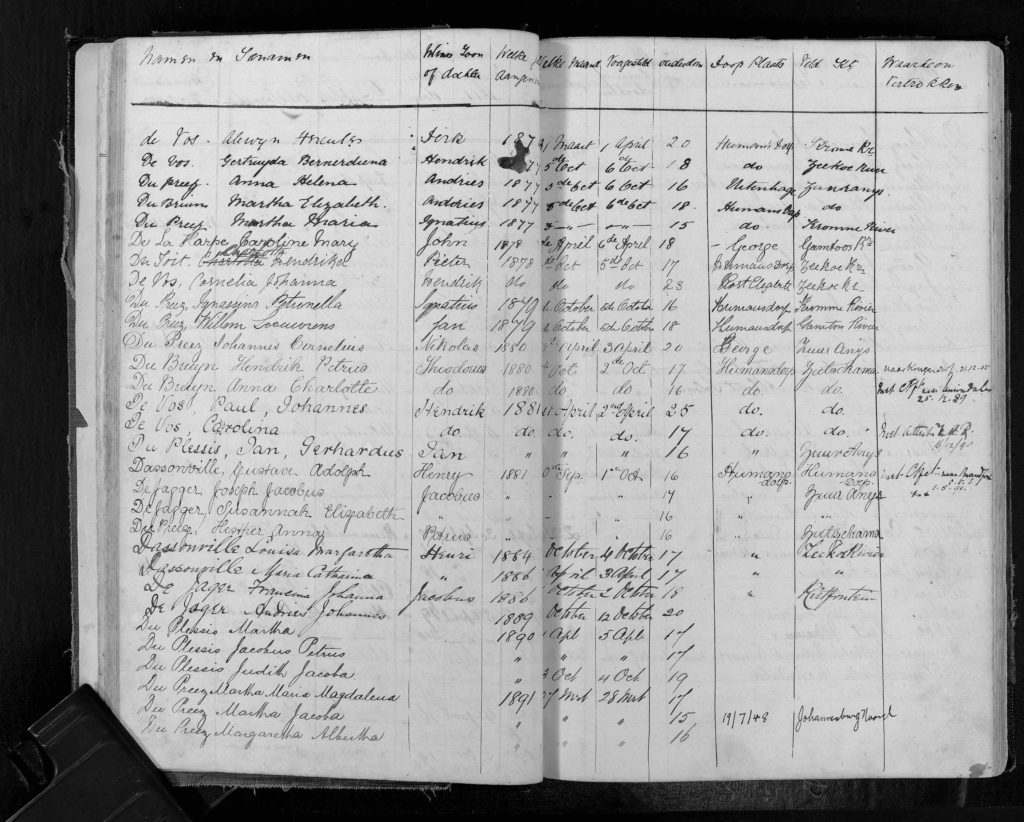 Namen en Vanamen Wiens Zoon of dochter Welke aangenomen Welke Maand Voorgesteld ouderdom Doop Plaats Veld Kt Waarheen Vertrokken
de Vos. Alewyn Dirk 187 Maart 1 April 20 Humans Dorp Kromme Re
De Vos. Gertruyda Bernerdiena Hendrik 77 5de Oct 6de Oct 18 do Zeekoe River
Du Preez. Anna Helena Andries 1877 5de Oct 6 Oct 16 Uitenhage Zuuranys
Du Bruin Martha Elizabeth. Andries 1877 5de Oct 6de Oct 18. Humans Dorp do
Du Preez. Martha Maria Ignatius 1877 15 do. Kromme River
De La Harpe Caroline Mary John 1878 April 6de April 18 George Gamtoos Rr
Du Toit. Charlotta Hendrika Pieter 1878 Oct 5de Oct 17 Humansdorp Zeekoe Rr
De Vos, Cornelia Johanna Hendrik do do do 23 Port Elizabeth Zeekoe Rr
Du Preez, Ignassina Petronella Ignatius 1879 October 5de Octobr 16 Humansdorp Kromme Rivier
Du Preez, Willem Louwerens Jan 1879 October 5de Octobr 18 Humansdorp Gamtoos Rivier
Du Preez Johannes Cornelius Nikolas 1880 April 3 April 20 George Zuur Anys
Du Bruyn Hendrik Petrus Theodorus 1880 Oct 2de Oct 17 Humansdorp Zietsekama 21.12.15
Du Bruyn Anna Charlotte do 1880 do. do. 16 do. do. 25. 12. 89
De Vos, Paul, Johannes Hendrik 1881 April 2nd April 25 do. do.
De Vos, Carolina do. do. do. do. 17 do. do. Met Attest
Du Plessis, Jan, Gerhardus Jan " " " 16 " Zuur Anys /12/90
Dassonville, Gustave Adolph Henry 1881 Sep. 1ste Oct 16 Humans dorp. Humans Dorp.
De Jagger Joseph Jacobus Jacobus " " 17 " Zuur Anys
De Jagger, Susannah Elizabeth " " " 16 " "
Du Preez Hester Anna Petrus " " 16 " Zietsekama
Dassonville Louisa Margaretha Henri 1884 October 4 October 17 " Zeekoe Rivier
Dassonville Maria Catharina " 1886 April 3 April 17 " "
De Jager Francina Johanna Jacobus 1886 October 2 October 18 " Rietfontein
De Jager Andries Johannes 1889 October 12 October 20
Du Plessis Martha 1890 Apl 5 Apl 17
Du Plessis Jacobus Petrus " " " 17
Du Plessis Judith Jacoba " 3 Oct 4 Oct 19
Du Preez Martha Maria Magdalena 1891 27 Mrt 28 Mrt 17
Du Preez Martha Jacoba " " " 15 19/7/48 Johannesburg Noord
Du Preez Margaretha Albertha " " " 16